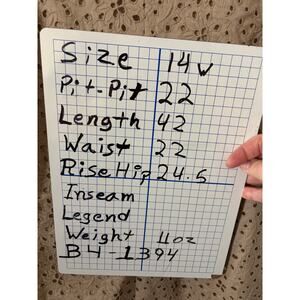 Size 14w
Pit-Pit 22
Length 42
Waist 22
Rise Hip 24.5
Inseam
Legend
Weight 11oz
B4-1394